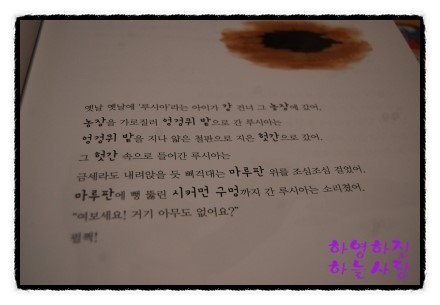 옛날 옛날에 '루시아'라는 아이가 강 건너 그 농장에 갔어.
농장을 가로질러 엉겅퀴 밭으로 간 루시아는
엉겅퀴 밭을 지나 얇은 철판으로 지은 헛간으로 갔어.
그 헛간 속으로 들어간 루시아는
금세라도 내려앉을 듯 삐걱대는 마루판 위를 조심조심 걸었어.
마루판에 뻥 뚫린 시커먼 구멍까지 간 루시아는 소리쳤어.
"여보세요! 거기 아무도 없어요?"
펄쩍!
하영하진
하는사람